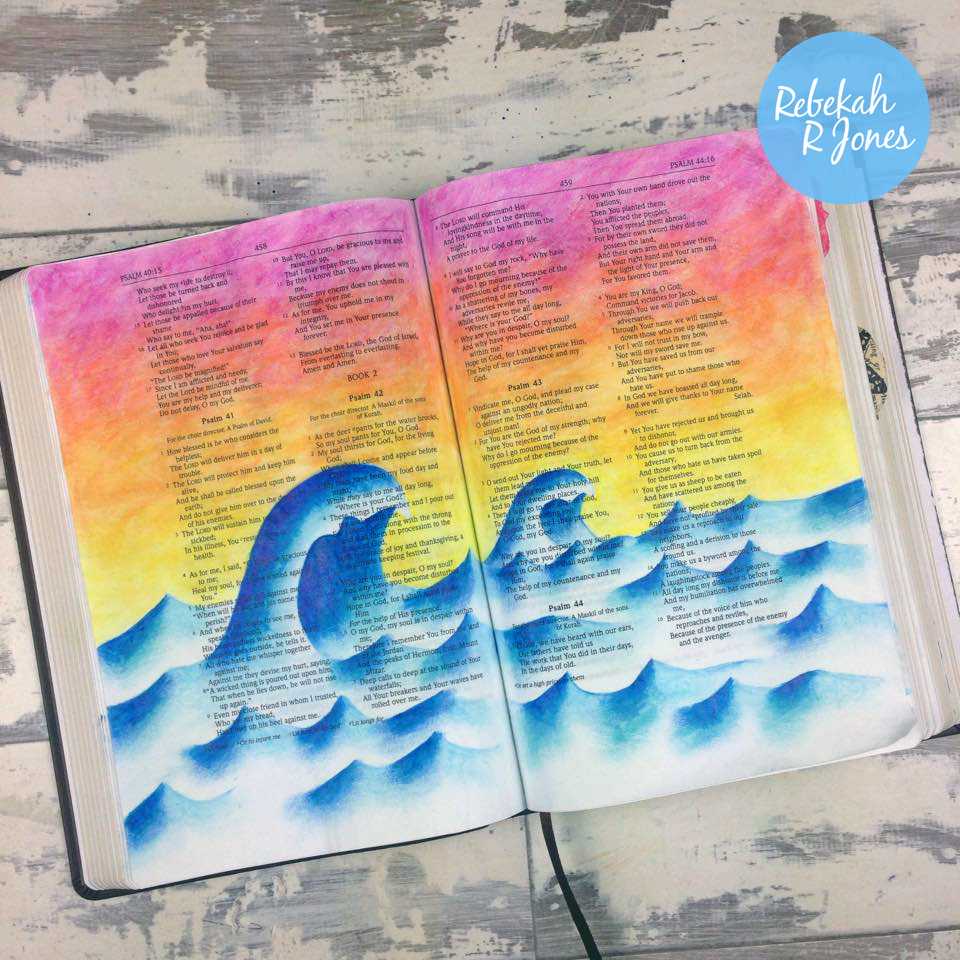 Rebekah
R Jones
PSALM 40:15
458
Who seek my life to destroy it;
Let those be turned back and
dishonored
Who delight in my hurt.
15 Let those be appalled because of their
shame
Who say to me, "Aha, aha!"
16 Let all who seek You rejoice and be glad
in You;
Let those who love Your salvation say
continually,
"The LORD be magnified!"
17 Since I am afflicted and needy,
Let the Lord be mindful of me.
You are my help and my deliverer;
Do not delay, O my God.
Psalm 41
For the choir director. A Psalm of David.
1 How blessed is he who considers the
helpless;
The LORD will deliver him in a day of
trouble.
2 The LORD will protect him and keep him
alive,
And he shall be called blessed upon the
earth;
And do not give him over to the
of his enemies.
3 The LORD will sustain him
sickbed;
In his illness, You
health.
4 As for me, I said,
to me;
Heal my soul, for
You."
5 My enemies
"When will
perish
6 And when
me,
His wickedness to
goes outside, he tells it.
7 All who hate me whisper together
against me;
Against me they devise my hurt, saying,
8 "A wicked thing is poured out upon him,
That when he lies down, he will not rise
up again."
9 Even my close friend in whom I trusted,
Who my bread,
Has lifted up his heel against me.
10 But You, O LORD, be gracious to me and
raise me up,
That I may repay them.
11 By this I know that You are pleased with
me,
Because my enemy does not shout in
triumph over me.
12 As for me, You uphold me in my
integrity,
And You set me in Your presence
forever.
13 Blessed be the LORD, the God of Israel,
From everlasting to everlasting.
Amen and Amen.
BOOK 2
Psalm 42
For the choir director. A Maskil of the sons
of Korah.
1 As the deer pants for the water brooks,
So my soul pants for You, O God.
2 My soul thirsts for God, for the living
God;
When shall I come and appear before
God?
3 My tears have been my food day and
night,
While they say to me all day long,
"Where is your God?"
4 These things I remember and I pour out
along with the throng
them in procession to the
God,
voice of joy and thanksgiving, a
keeping festival.
5 Why are you in despair, O my soul?
And why have you become disturbed
within me?
Hope in God, for I shall
Him
For the help of His presence.
6 O my God, my soul is in despair within
me;
Therefore I remember You from
of the Jordan
And the peaks of Hermon, from Mount
Mizar.
7 Deep calls to deep at the sound of Your
waterfalls;
All Your breakers and Your waves have
rolled over me.
459
PSALM 44:16
8 The LORD will command His
lovingkindness in the daytime;
And His song will be with me in the
night,
A prayer to the God of my life.
9 I will say to God my rock, "Why have
You forgotten me?
Why do I go mourning because of the
oppression of the enemy?"
10 As a shattering of my bones, my
adversaries revile me,
While they say to me all day long,
"Where is your God?"
11 Why are you in despair, O my soul?
And why have you become disturbed
within me?
Hope in God, for I shall yet praise Him,
The help of my countenance and my
God.
Psalm 43
1 Vindicate me, O God, and plead my case
against an ungodly nation;
O deliver me from the deceitful and
unjust man!
2 For You are the God of my strength; why
have You rejected me?
Why do I go mourning because of the
oppression of the enemy?
3 O send out Your light and Your truth, let
them lead
Let them to Your holy hill
And to Your dwelling places.
4 Then I will go to God,
To God my exceeding joy;
And upon the lyre I shall praise You,
O God, my God.
5 Why are you in despair, O my soul?
And why are you disturbed within me?
Hope in God, for I shall again praise
Him,
The help of my countenance and my
God.
Psalm 44
For the choir director. A Maskil of the sons
of Korah.
1 O God, we have heard with our ears,
Our fathers have told us
The work that You did in their days,
In the days of old.
2 You with Your own hand drove out the
nations;
Then You planted them;
You afflicted the peoples,
Then You spread them abroad.
3 For by their own sword they did not
possess the land,
And their own arm did not save them,
But Your right hand and Your arm and
the light of Your presence,
For You favored them.
4 You are my King, O God;
Command victories for Jacob.
5 Through You we will push back our
adversaries;
Through Your name we will trample
down those who rise up against us.
6 For I will not trust in my bow,
Nor will my sword save me.
7 But You have saved us from our
adversaries,
And You have put to shame those who
hate us.
8 In God we have boasted all day long,
And we will give thanks to Your name
forever. Selah.
9 Yet You have rejected us and brought us
to dishonor,
And do not go out with our armies.
10 You cause us to turn back from the
adversary;
And those who hate us have taken spoil
for themselves.
11 You give us as sheep to be eaten
And have scattered us among the
nations.
12 You sell Your people cheaply,
And have not profited by their sale.
13 You make us a reproach to our
neighbors,
A scoffing and a derision to those
around us.
14 You make us a byword among the
nations,
A laughingstock among the peoples.
15 All day long my dishonor is before me
And my humiliation has overwhelmed
me,
16 Because of the voice of him who
reproaches and reviles,
Because of the presence of the enemy
and the avenger.